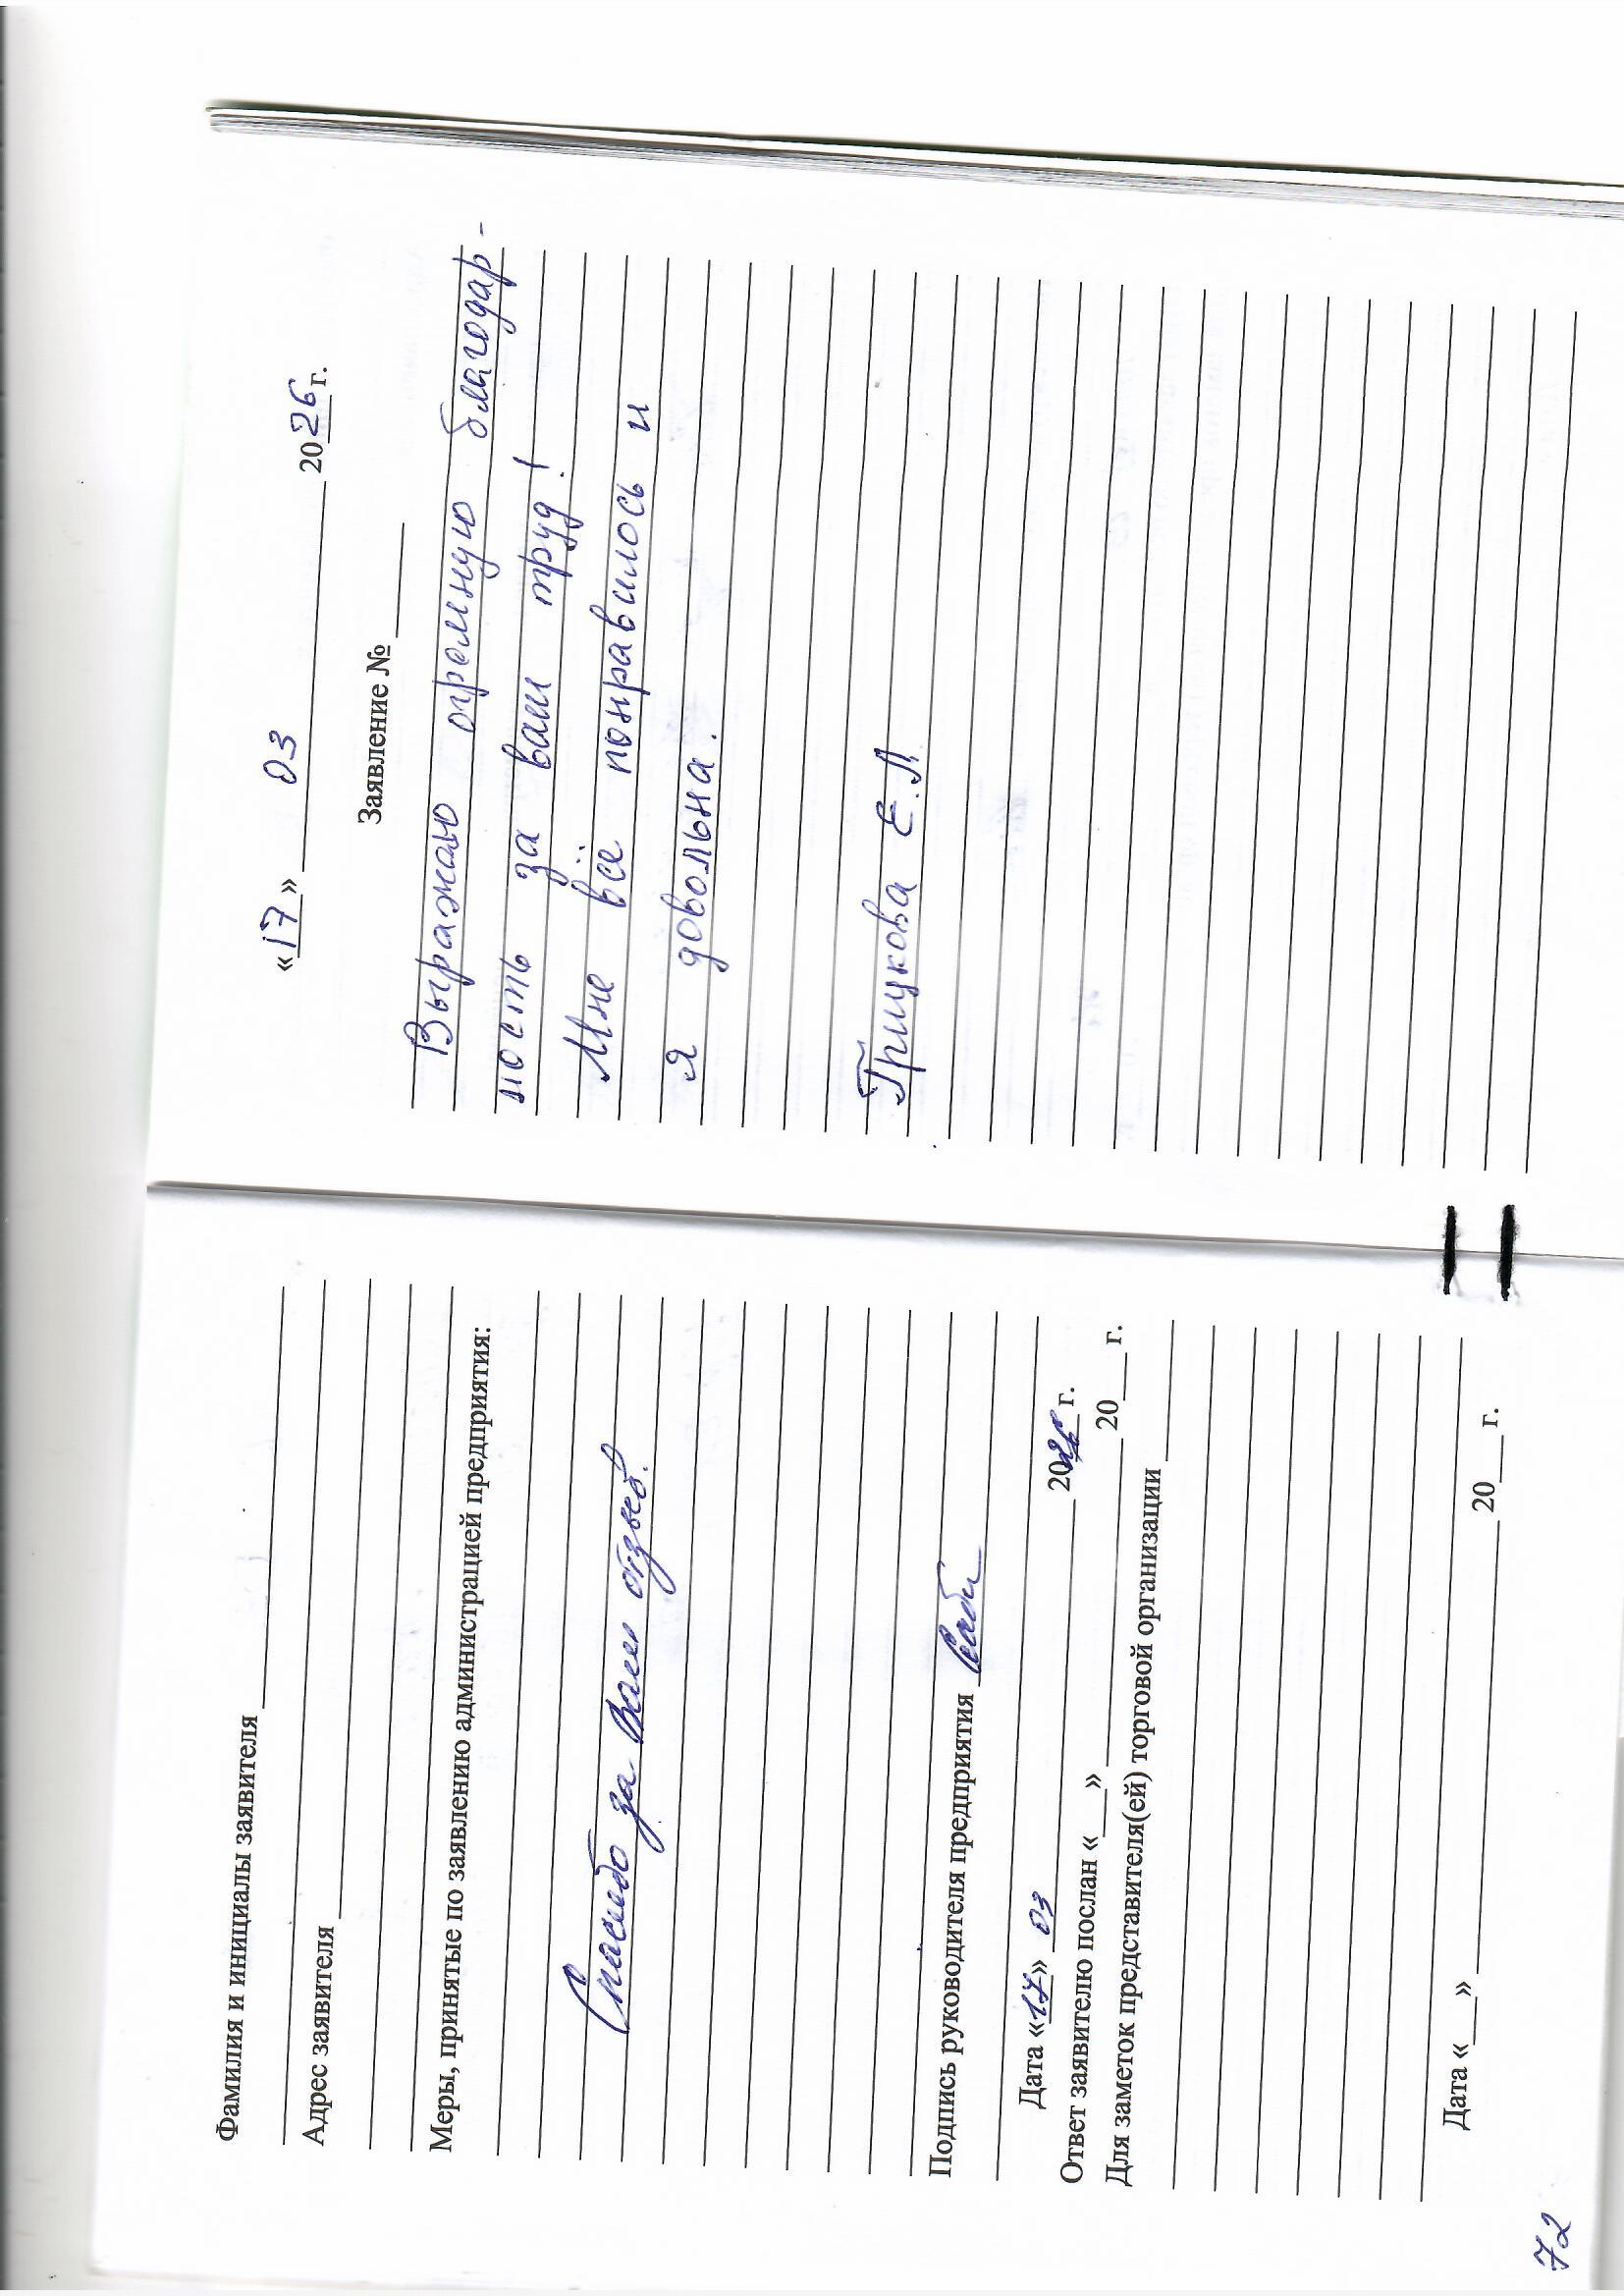 Фамилия и инициалы заявителя
Адрес заявителя
Меры, принятые по заявлению администрацией предприятия:
Спасибо за Ваш отзыв.
Подпись руководителя предприятия
Дата «17» 03 2026 г.
Ответ заявителю послан «___» 20___ г.
Для заметок представителя(ей) торговой организации
Дата «___» 20___ г.
72
«17» 03 2026 г.
Заявление № ____
Выражаю огромную благодар-
ность за ваш труд!
Мне всё понравилось и
я довольна.
Грицкова Е.Л